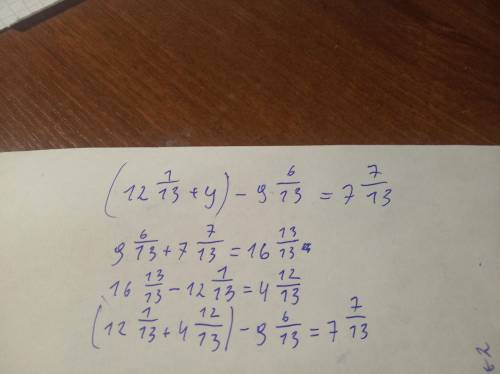 (12 1/13 + y) - 9 6/13 = 7 7/13
9 6/13 + 7 7/13 = 16 13/13
16 13/13 - 12 1/13 = 4 12/13
(12 1/13 + 4 12/13) - 9 6/13 = 7 7/13